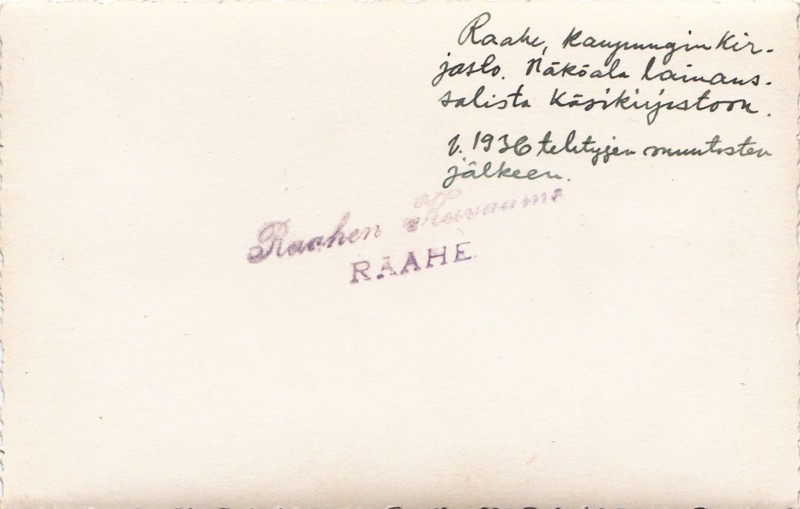 Raahe, kaupunginkir-
jasto. Näköala lainaus-
salista Käsikirjastoon.
v. 1936 tehtyjen muutosten
jälkeen.
Raahen Kuvaamo
RAAHE